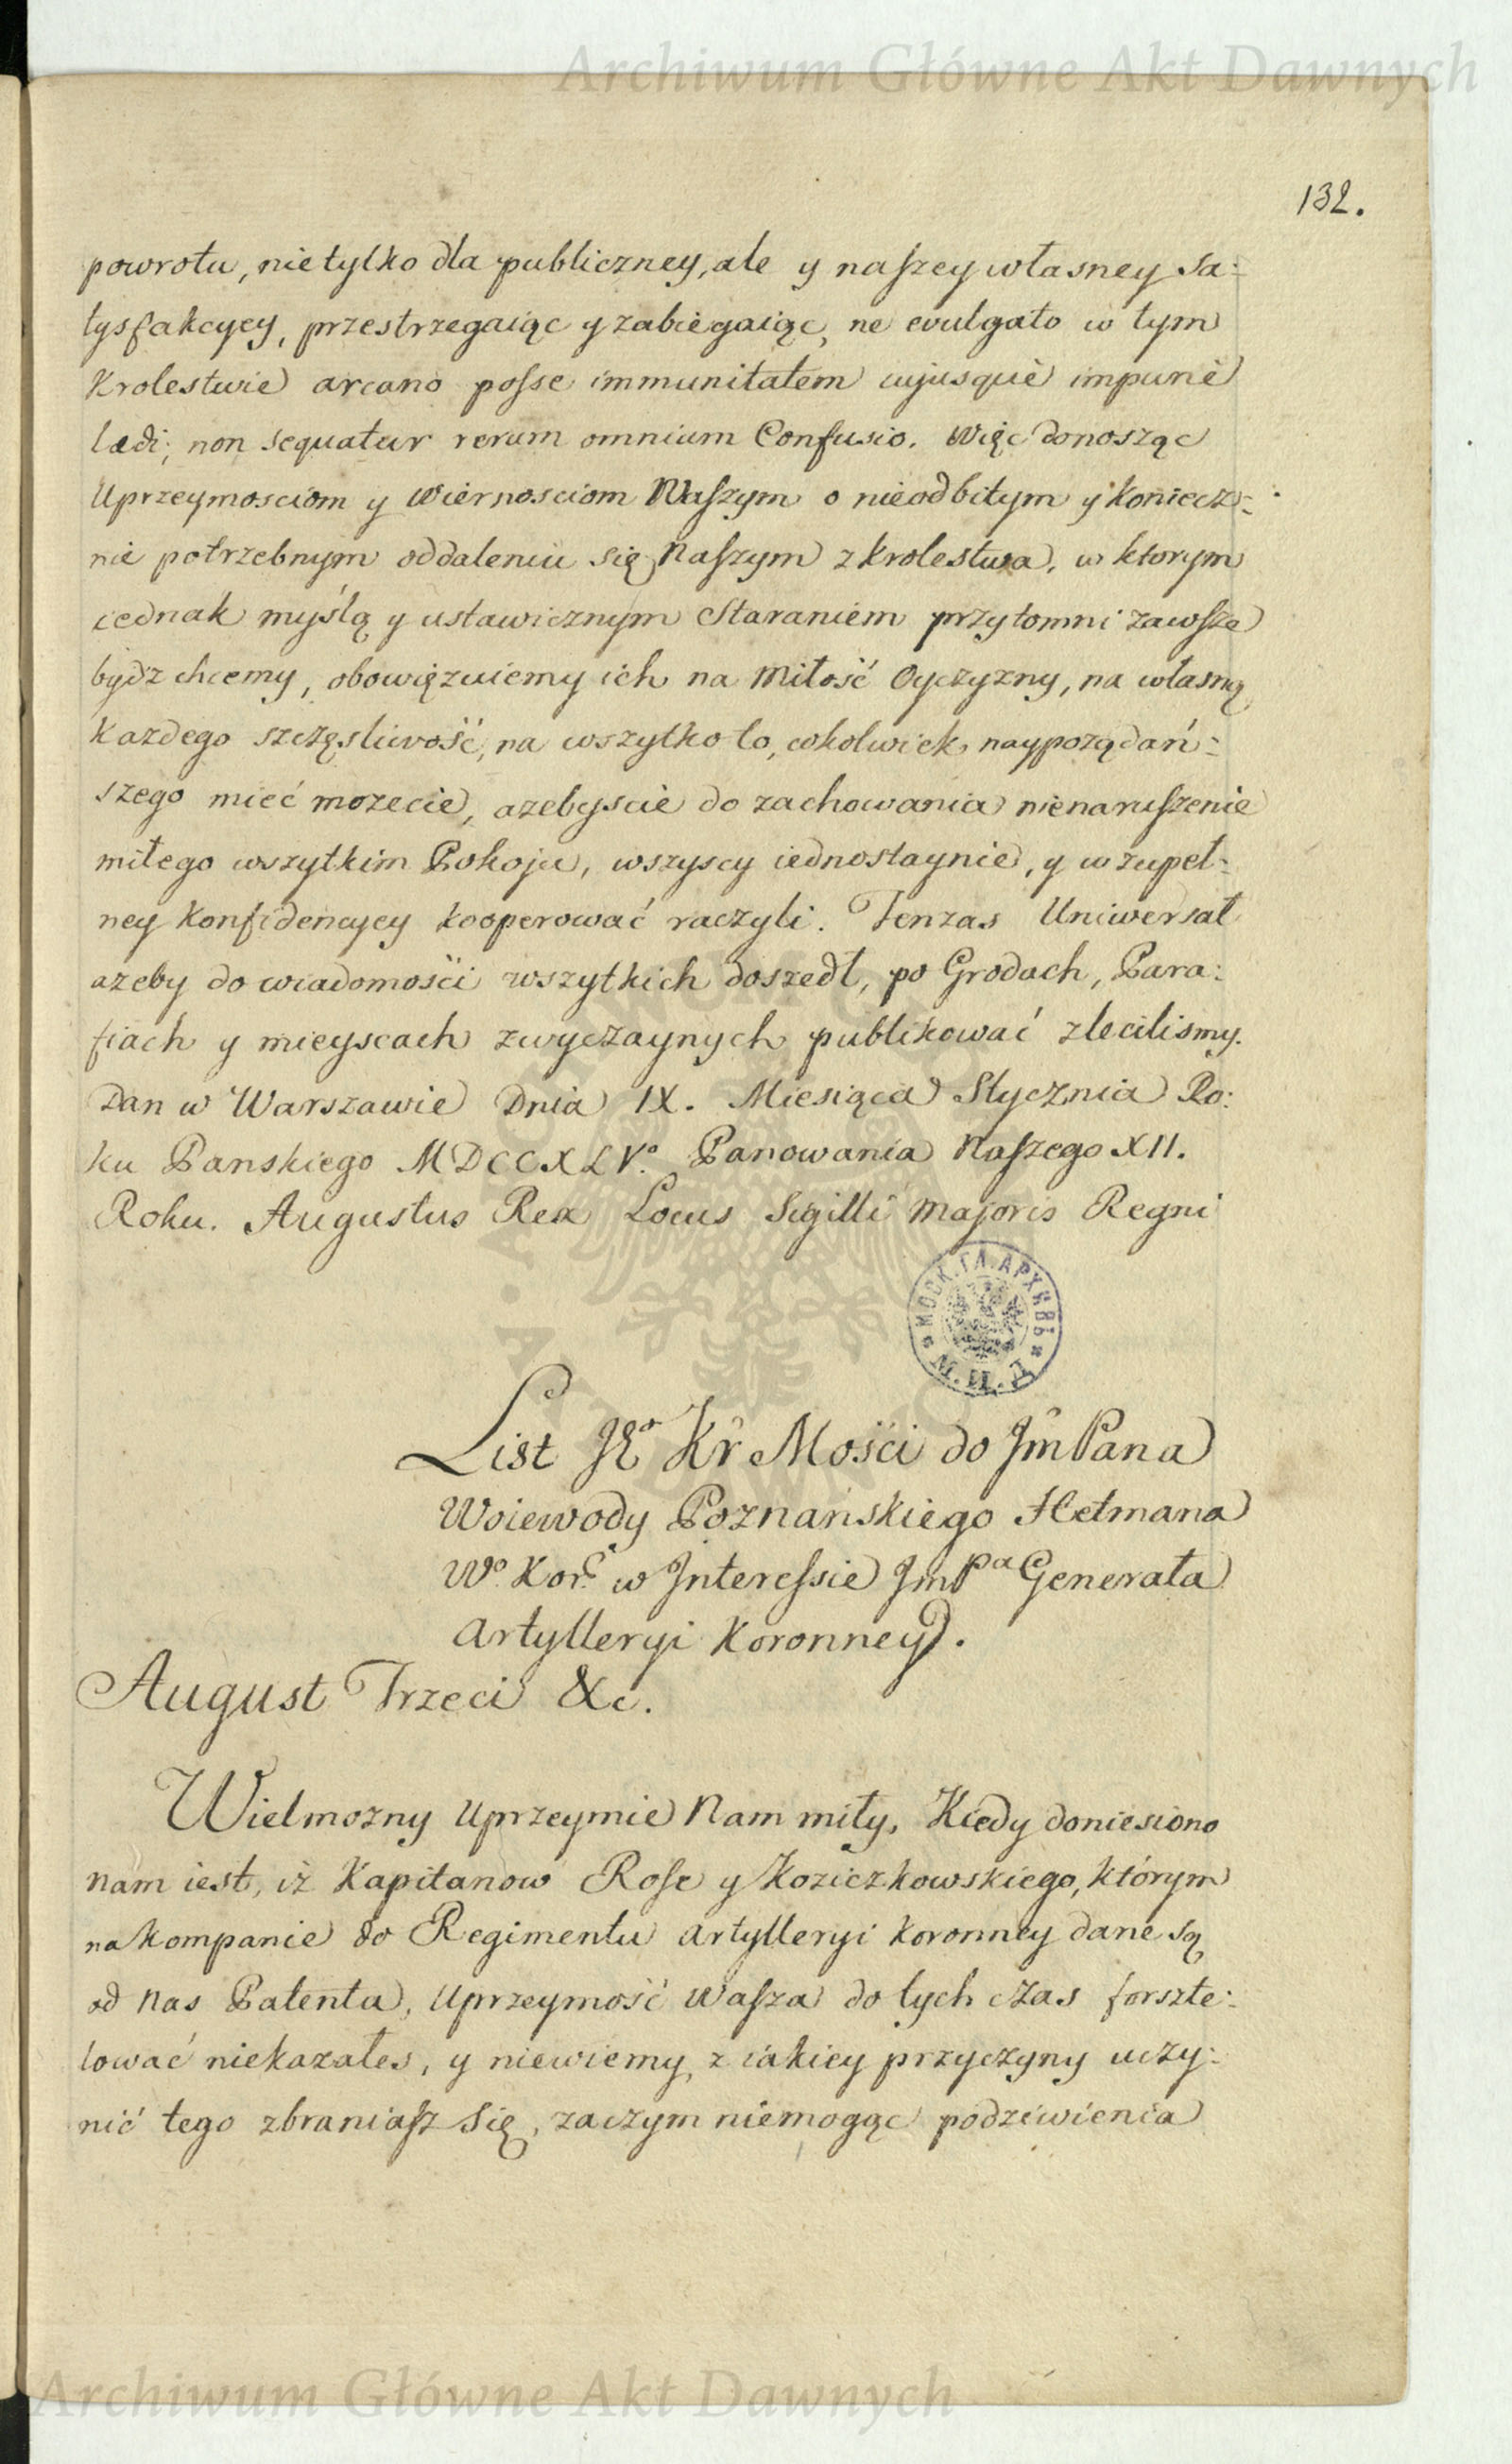 Archiwum Główne Akt Dawnych
132.
powrotu, nietylko dla publiczney, ale y naszey własney Sa:
tysfakcyey, przestrzegaiąc y zabiegaiąc, ne evulgato w tym
Krolestwie arcano posse immunitatem cujusquè impunè
lædi; non sequatur rerum omnium Confusio. Więc donosząc
Uprzeymosciom y Wiernosciom Waszym o nieodbitym y koniecz:
nie potrzebnym oddaleniu się Naszym z krolestwa, w ktorym
iednak myślą y ustawicznym Staraniem przytomni zawsze
bydz chcemy, obowięzuiemy ich na Miłość Oyczyzny, na własną
każdego szczęsliwość, na wszytko to, cokolwiek naypoządań:
szego mieć mozecie, azebyscie do zachowania nienaruszenie
miłego wszytkim Pokoju, wszyscy iednostaynie, y w zupeł:
ney Konfidencyey kooperować raczyli. Tenzas Uniwersał
azeby do wiadomości wszytkich doszedł, po Grodach, Para:
fiach y mieyscach zwyczaynych publikować zlecilismy.
Dan w Warszawie Dnia IX. Miesiąca Stycznia Ro:
ku Panskiego MDCCXLV.º Panowania Naszego XII.
Roku. Augustus Rex Locus Sigilli Majoris Regni
МОСК. ГЛ. АРХИВЪ
М. И. Д.
List JKo Kr Mości do Jm Pana
Woiewody Poznańskiego Hetmana
Wo. Kor. w Interessie JmPa Generała
Artylleryi Koronney.
August Trzeci &c.
Wielmozny Uprzeymie Nam miły, Kiedy doniesiono
nam iest, iż Kapitanow Rose y Koziczkowskiego, którym
na kompanie do Regimentu Artylleryi Koronney dane są
od Nas Patenta, Uprzeymość Wasza do tych czas forszte:
lować niekazałes, y niewiemy z iakiey przyczyny uczy:
nić tego zbraniasz się, zaczym niemogąc podziwienia
Archiwum Główne Akt Dawnych